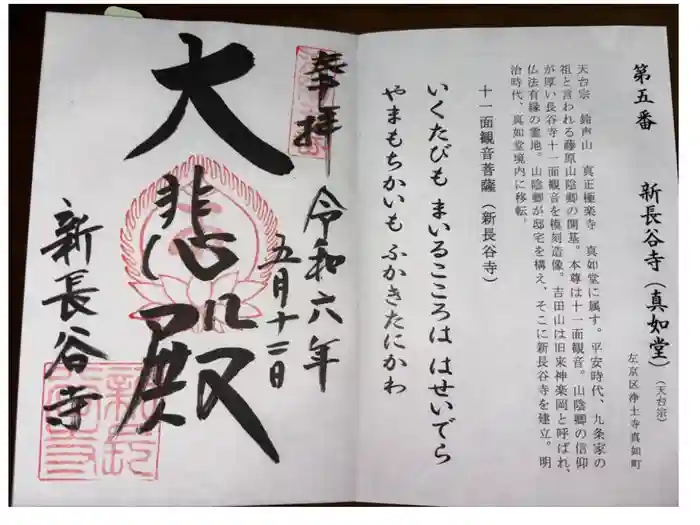 第五番 新長谷寺(真如堂)(天台宗)
左京区浄土寺真如町
天台宗 鈴声山 真正極楽寺 真如堂に属す。平安時代、九条家の
祖と言われる藤原山陰卿の開基。本尊は十一面観音。山陰卿の信仰
が厚い長谷寺十一面観音を模刻造像。吉田山は旧来神楽岡と呼ばれ、
仏法有縁の霊地。山陰卿が邸宅を構え、そこに新長谷寺を建立。明
治時代、真如堂境内に移転。
十一面観音菩薩(新長谷寺)
いくたびも まいるこころは はせいでら
やまもちかいも ふかきたにかわ
奉拝
令和六年
五月十二日
大悲殿
新長谷寺